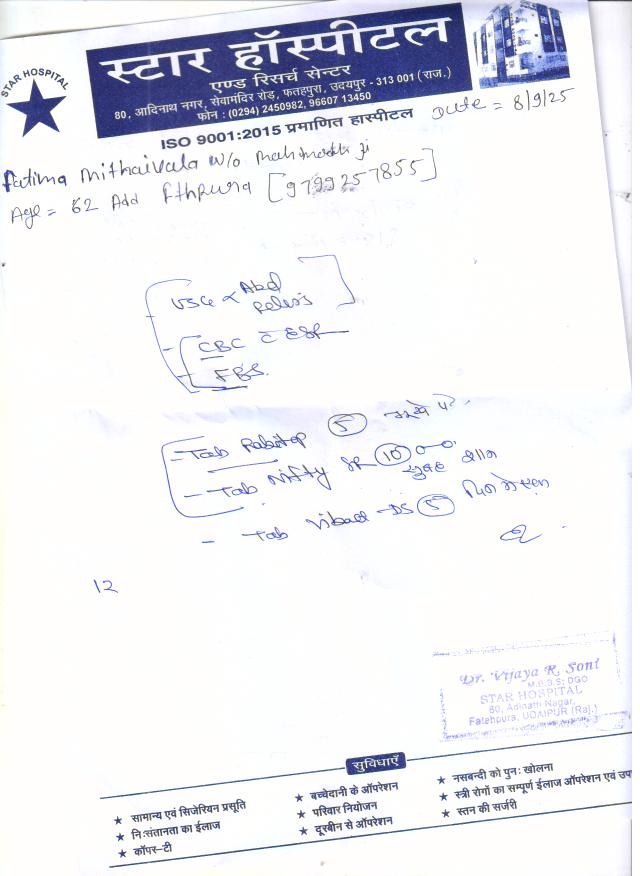 STAR HOSPITAL
स्टार हॉस्पीटल
एण्ड रिसर्च सेन्टर
80, आदिनाथ नगर, सेवामंदिर रोड़, फतहपुरा, उदयपुर - 313 001 (राज.)
फोन : (0294) 2450982, 96607 13450
ISO 9001:2015 प्रमाणित हास्पीटल
Date = 8/9/25
Fatima Mithaivala w/o
Age = 62 Add Fthpura [9799257855]
USG Abd
Pelvis
CBC c ESR
FBS.
Tab 5
Tab Nifty SR 10 सुबह शाम
Tab -DS 5
12
Dr. Vijaya R. Soni
M.B.B.S; DGO
STAR HOSPITAL
80, Adinath Nagar,
Fatehpura, UDAIPUR (Raj.)
सुविधाएँ
★ सामान्य एवं सिजेरियन प्रसूति
★ निःसंतानता का ईलाज
★ कॉपर-टी
★ बच्चेदानी के ऑपरेशन
★ परिवार नियोजन
★ दूरबीन से ऑपरेशन
★ नसबन्दी को पुनः खोलना
★ स्त्री रोगों का सम्पूर्ण ईलाज ऑपरेशन एवं उप
★ स्तन की सर्जरी